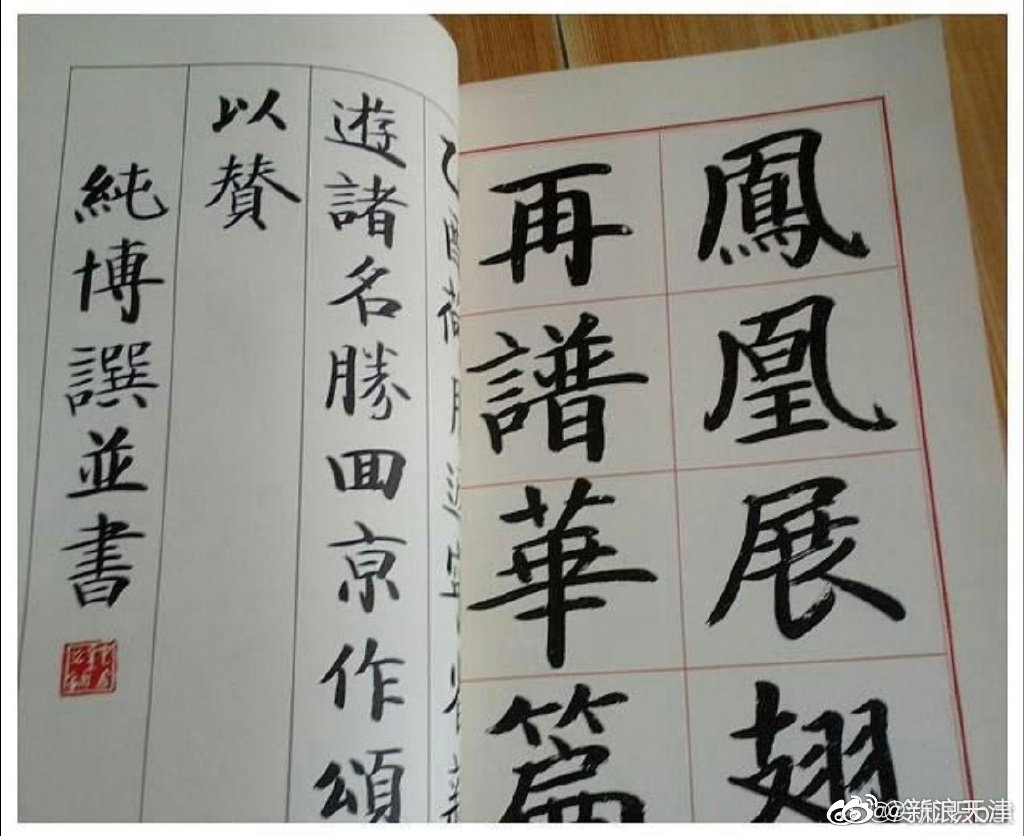 鳳凰展翅
再譜華篇
遊諸名勝回京作頌
以贊
純博譔並書
@新浪天津